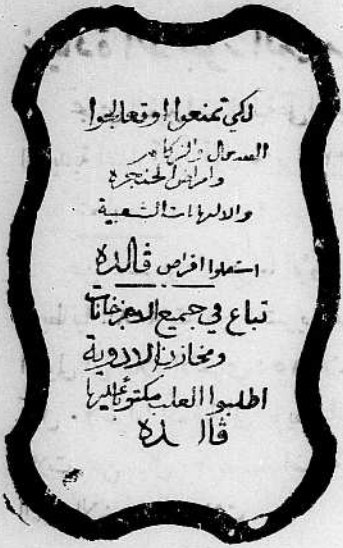 لكي تمنعوا او تعالجوا
السعال والزكام
وامراض الحنجرة
والالتهابات الشعبية
استعملوا اقراص ڤالده
تباع في جميع الاجزخانات
ومخازن الادوية
اطلبوا العلب مكتوباً عليها
ڤالده